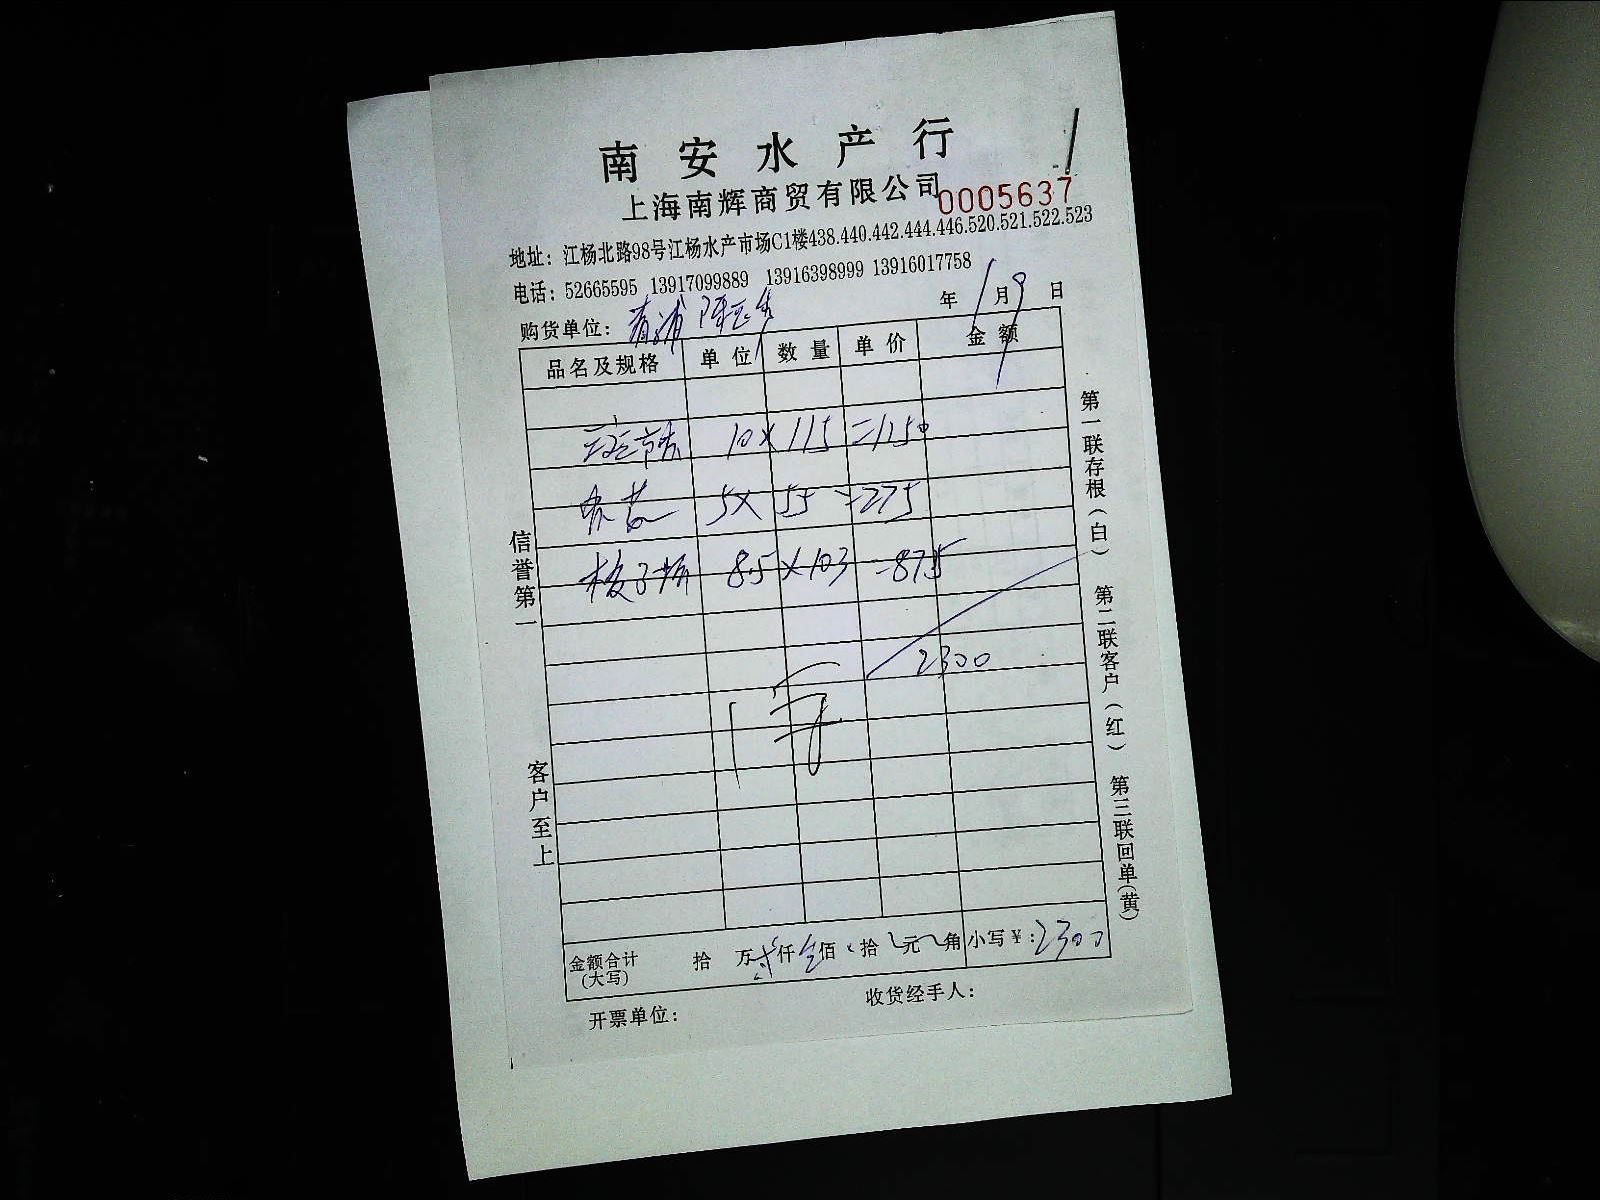 南安水产行
上海南辉商贸有限公司
0005637
地址：江杨北路98号江杨水产市场C1楼438.440.442.444.446.520.521.522.523
电话：52665595 13917099889 13916398999 13916017758
购货单位：青浦 陈 年 1月9日
品名及规格 单位 数量 单价 金额
斑节 10×115=1150
5×55=275
8.5×103=875
2300
金额合计(大写) 拾 万 仟 佰 拾 元 角 小写￥：2300
开票单位： 收货经手人：
信誉第一 客户至上
第一联存根(白) 第二联客户(红) 第三联回单(黄)